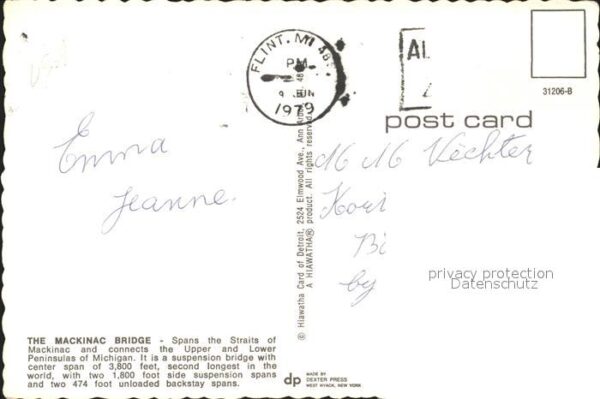 FLINT, MI 485
PM
9 JUN
1979
31206-B
post card
Emma
Jeanne.
M M Vechter
by
privacy protection
Datenschutz
© Hiawatha Card of Detroit, 2524 Elmwood Ave., Ann
A HIAWATHA® product. All rights reserved.
THE MACKINAC BRIDGE - Spans the Straits of
Mackinac and connects the Upper and Lower
Peninsulas of Michigan. It is a suspension bridge with
center span of 3,800 feet, second longest in the
world, with two 1,800 foot side suspension spans
and two 474 foot unloaded backstay spans.
dp
MADE BY
DEXTER PRESS
WEST NYACK, NEW YORK